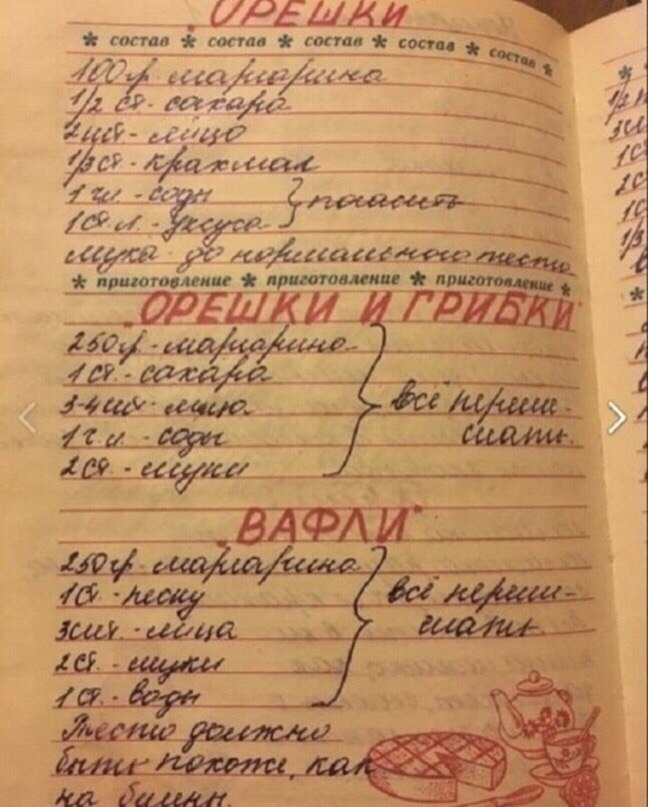 ОРЕШКИ
* состав * состав * состав * состав * состав *
100 гр. маргарина
1/2 ст. сахара
2 шт. яйцо
1/3 ст. крахмал
1 ч л. - соды } погасить
1 ст. л. - уксуса
мука до нормального теста
* приготовление * приготовление * приготовление *
"ОРЕШКИ И ГРИБКИ"
250 гр. - маргарина
1 ст. - сахара
3-4 шт. - яйца } всё переме-
1 ч. л. - соды шать.
2 ст. - муки
"ВАФЛИ"
250 гр. - маргарина
1 ст. - песку } всё переме-
3 шт. - яйца шать.
2 ст. - муки
1 ст. - воды
Тесто должно
быть похоже, как
на блины.